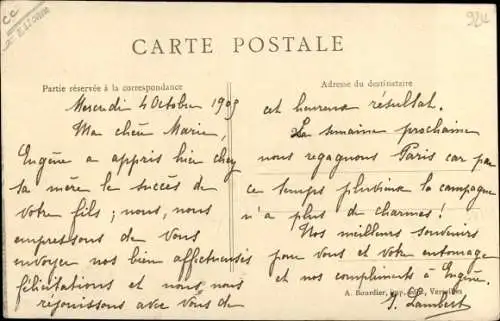 CARTE POSTALE
Partie réservée à la correspondance
Adresse du destinataire
Mercredi 4 Octobre 1905
Ma chère Marie,
Eugène a appris hier chez
sa mère le succès de
votre fils ; nous, nous
empressons de vous
envoyer nos bien affectueuses
félicitations et nous nous
réjouissons avec vous de
cet heureux résultat.
La semaine prochaine
nous regagnons Paris car par
ce temps pluvieux la campagne
n'a plus de charmes !
Nos meilleurs souvenirs
pour vous et votre entourage
et nos compliments à Eugène.
A. Bourdier, Imp.-Édit., Versailles
Lambert